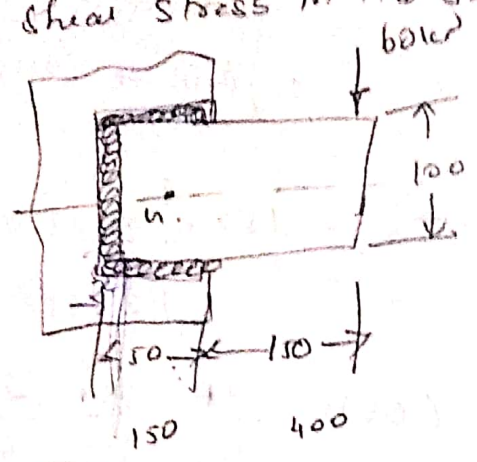 Shear Stress
60kN
100
G.
50
150
150
400